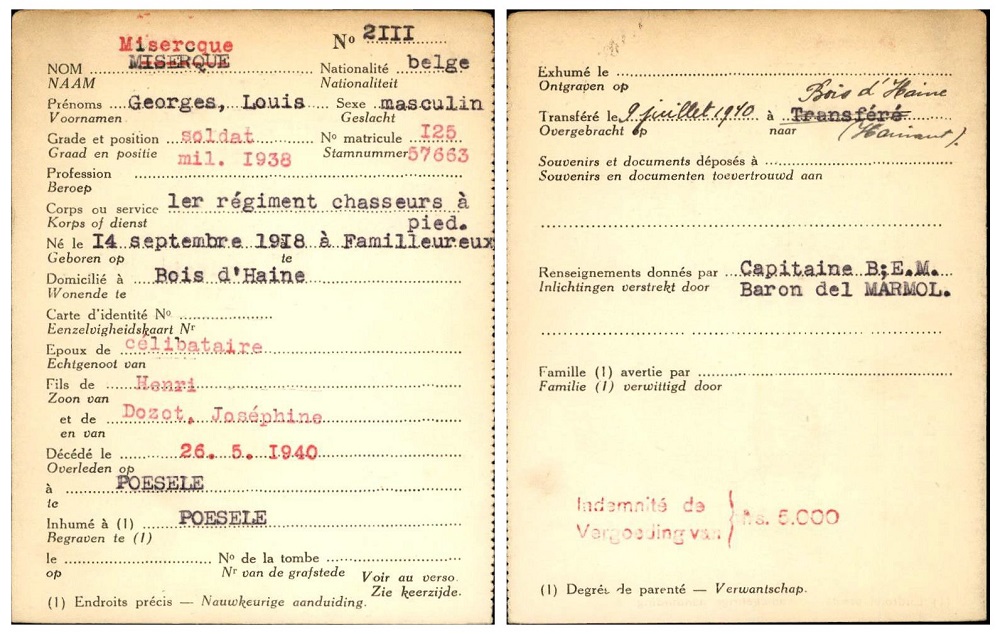 Misercque
Nº 2III
NOM MISERQUE Nationalité belge
NAAM Nationaliteit
Prénoms Georges, Louis Sexe masculin
Voornamen Geslacht
Grade et position soldat Nº matricule I25
Graad en positie mil. I938 Stamnummer 57663
Profession
Beroep
Corps ou service 1er régiment chasseurs à
Korps of dienst pied.
Né le I4 septembre 1918 à Familleureux
Geboren op te
Domicilié à Bois d'Haine
Wonende te
Carte d'identité Nº
Eenzelvigheidskaart Nr
Epoux de célibataire
Echtgenoot van
Fils de Henri
Zoon van
et de Dozot, Joséphine
en van
Décédé le 26. 5. I940
Overleden op
à POESELE
te
Inhumé à (1) POESELE
Begraven te (1)
le Nº de la tombe
op Nr van de grafstede Voir au verso.
Zie keerzijde.
(1) Endroits précis — Nauwkeurige aanduiding.
Exhumé le
Ontgraven op
Bois d'Haine
Transféré le 9 juillet 1940 à Transféré
Overgebracht op naar (Hainaut).
Souvenirs et documents déposés à
Souvenirs en documenten toevertrouwd aan
Renseignements donnés par Capitaine B;E.M.
Inlichtingen verstrekt door Baron del MARMOL.
Famille (1) avertie par
Familie (1) verwittigd door
Indemnité de
Vergoeding van } frs. 5.000
(1) Degrés de parenté — Verwantschap.